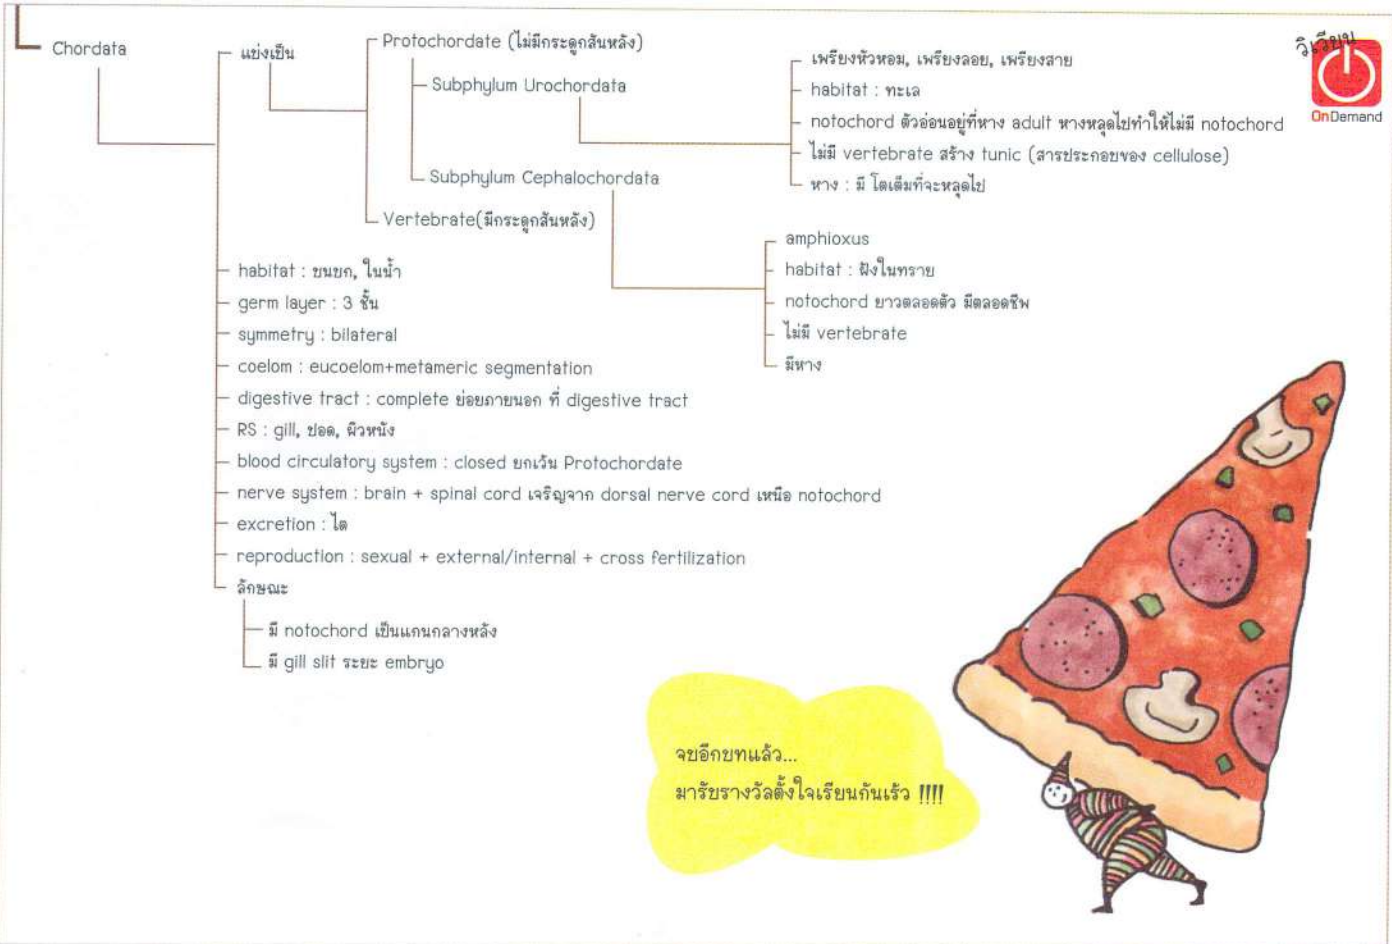 Chordata
แบ่งเป็น
Protochordate (ไม่มีกระดูกสันหลัง)
Subphylum Urochordata
เพรียงหัวหอม, เพรียงลอย, เพรียงสาย
habitat : ทะเล
notochord ตัวอ่อนอยู่ที่หาง adult หางหลุดไปทำให้ไม่มี notochord
ไม่มี vertebrate สร้าง tunic (สารประกอบของ cellulose)
หาง : มี โตเต็มที่จะหลุดไป
Subphylum Cephalochordata
amphioxus
habitat : ฝังในทราย
notochord ยาวตลอดตัว มีตลอดชีพ
ไม่มี vertebrate
มีหาง
Vertebrate(มีกระดูกสันหลัง)
habitat : บนบก, ในน้ำ
germ layer : 3 ชั้น
symmetry : bilateral
coelom : eucoelom+metameric segmentation
digestive tract : complete ย่อยภายนอก ที่ digestive tract
RS : gill, ปอด, ผิวหนัง
blood circulatory system : closed ยกเว้น Protochordate
nerve system : brain + spinal cord เจริญจาก dorsal nerve cord เหนือ notochord
excretion : ไต
reproduction : sexual + external/internal + cross fertilization
ลักษณะ
มี notochord เป็นแกนกลางหลัง
มี gill slit ระยะ embryo
วิเวียน
OnDemand
จบอีกบทแล้ว...
มารับรางวัลตั้งใจเรียนกันเร้ว !!!!